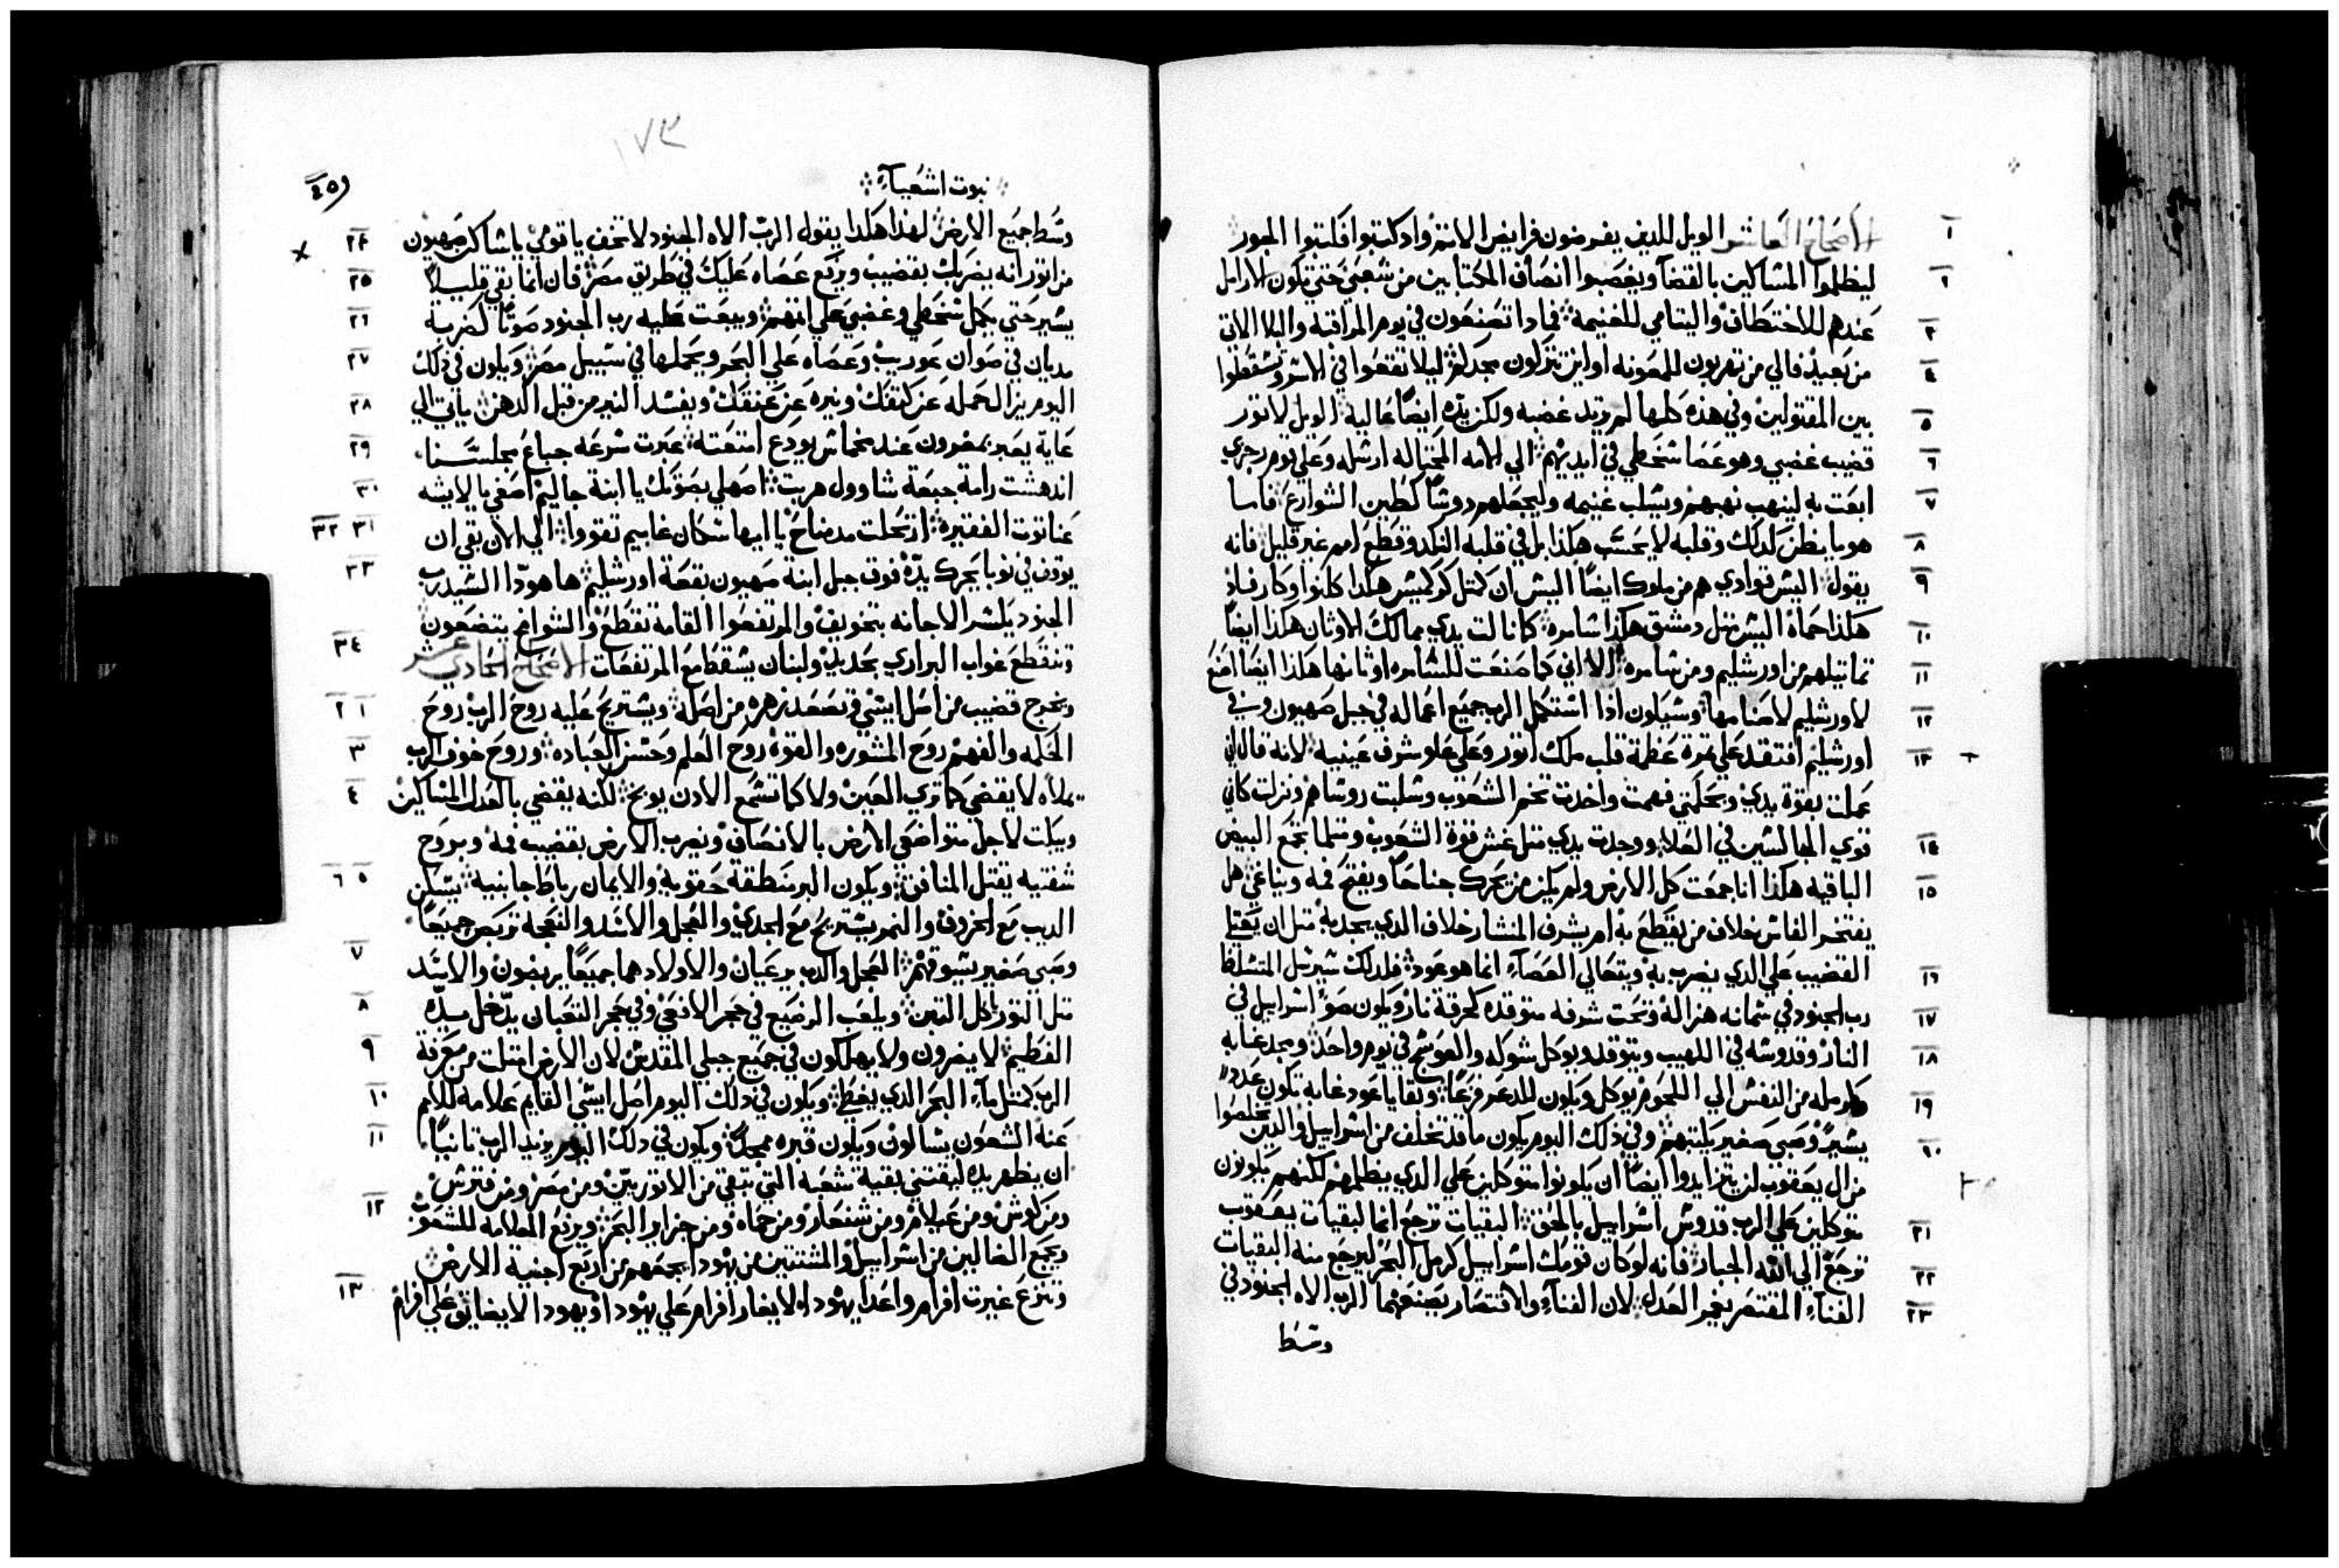 الاصحاح العاشر الويل للدين يفرضون فرايض الاتم واد كتبوا فكتبوا الجور
١
ليظلموا المساكين بالقضآ ويغصبوا انصاف المكتابين من شعبي حتي تكون الارامل
٢
عندهم للاختطاف واليتامي للغنيمة فمادا تصنعون في يوم المراقبة والبلا الاتي
٣
من بعيد فالي من تهربون للمعونه او اين تتركون مجدكم ليلا تقعوا في الاسر وتسقطوا
٤
بين المقتولين وفي هذه كلها لم يرتد غضبه ولكن يده ايضاً عالية الويل لاتور
٥
قضيب غضبي وهو عصا سخطي في ايديهم الي الامه المحتاله ارسله وعلي يوم رجزي
٦
ابعت به لينهب نهبهم ويسلب غنيمه وليجعلهم دوساً كطين الشوارع فاما
٧
هو ما يظن كدلك وقلبه لا يحسب هكذا بل في قلبه النكد وقطع امم غير قليل فانه
٨
يقول اليس قوادي هم من ملوك ايضاً اليس ان كمتل كركميش هكدا كلنوا وكارفاد
٩
هكذا حماة اليس متل دمشق هكذا سامره كما نالت يدي ممالك الاوتان هكذا ايضاً
١٠
تماتيلهم من اورشليم ومن سامره الا اني كما صنعت للسامره اوتانها هكذا ايضاً اصنع
١١
لاورشليم لاصنامها وسيكون اذا استكمل الرب جميع اعماله في جبل صهيون وفي
١٢
اورشليم افتقد علي تمرة عظمة قلب ملك اتور وعلي علو شرف عينيه لانه قال اني
١٣
عملت بقوة يدي وبحكمتي فهمت واخدت تخم الشعوب وسلبت روساهم ونزلت كاني
قوي الجالسين في العلا ووجدت يدي متل عش قوة الشعوب ومتلما تجمع البيض
١٤
الباقيه هكذا انا جمعت كل الارض ولم يكن من يحرك جناحاً ويفتح فمه ويناغي هل
١٥
يفتخر الفاس خلاف من يقطع به ام يشرف المنشار خلاف الدي يجد به متل ان يعتلي
القضيب علي الدي يضرب به ويتعالي العصآء انما هو عود فلدلك سيرسل المتسلط
١٦
رب الجنود في سمانه هزاله وتحت شرفه متوقده كحرقة نار ويكون ضو اسراييل في
١٧
النار وقدوسه في اللهيب ويتوقد ويوكل شوكه والعوسج في يوم واحد ومجد غابه
١٨
وكرمله من النفس الي اللحوم يوكل ويكون للدعر فزعاً وبقايا عود غابه تكون عدد
١٩
يسيرً وصبي صغير يكتبهم وفي ذلك اليوم يكون ما قد تخلف من اسراييل والدين تخلصوا
٢٠
من ال يعقوب لن يتزايدوا ايضاً ان يكونوا متوكلين علي الدي يظلمهم لكنهم يكونون
متوكلين علي الرب قدوس اسراييل بالحق البقيات ترجع انما البقيات يعقوب
٢١
ترجع الي الله الجبار فانه لو كان قومك اسراييل كرمل البحر ليرجع منه البقيات
٢٢
الفنآء المقتصر يغمر العدل لان الفنآء والاقتصار يصنعهما الرب الاه الجنود في
٢٣
وسط
١٧٣
نبوت اشعيآء
وسط جميع الارض لهذا هكدا يقول الرب الاه الجنود لا تخف يا قومي يا ساكن صهيون
٢٤
من اتور انه يضربك بقضيب ويرفع عصاه عليك في طريق مصر فان انما بقي قليلاً
٢٥
يسير حتي يكمل سخطي وغضبي علي اتمهم ويبعت عليه رب الجنود صوتاً كضربة
٢٦
مديان في صوان عوريب وعصاه علي البحر ويحملها في سبيل مصر ويكون في ذلك
٢٧
اليوم يزال حمله عن كتفك ونيره عن عنقك ويفسد النير من قبل الدهن ياتي الي
٢٨
عاية يعبر بمغرون عند مخماش يودع امتعته عبرت سرعه جباع مجلسنا
٢٩
اندهشت رامة جبعة شاوول هربت اصهلي بصوتك يا ابنة جاليم اصغي يا لايشه
٣٠
عناتوت الفقيره ارتحلت مدمناح يا ايها سكان غابيم تقووا الي الان بقي ان
٣١ ٣٢
يوقف في نوبا يحرك يده فوق جبل ابنة صهيون بقعة اورشليم ها هودا السيد رب
٣٣
الجنود يكسر الاجانه بتخويف والمرتفعوا القامة تقطع والشوامخ يتضعون
وتنقطع غواب البراري بحديد ولبنان يسقط مع المرتفعات الاصحاح الحادي عشر
٣٤
ويخرج قضيب من اصل ايسي وتصعد زهره من اصله ويستريح عليه روح الرب روح
١ ٢
الحكمه والفهم روح المشوره والقوة روح العلم وحسن العباده وروح خوف الرب
٣
يملاه لا يقضي كما تري العين ولا كما تسمع الادن يوبخ لكنه يقضي بالعدل للمساكين
٤
ويبكت لاجل متواضعي الارض بالانصاف ويضرب الارض بقضيب فمه وبروح
شفتيه يقتل المنافق ويكون البر منطقة حقويه والايمان رباط جانبيه يسكن
٥ ٦
الديب مع الخروف والنمر يستريح مع الجدي والعجل والاسد والنعجه تربض جميعاً
وصبي صغير يسوقهم العجل والدب يرعيان والاولاد هما جميعاً يربضون والاسد
٧
متل التور ياكل التبن ويلعب الرضيع في جحر الافعي وفي جحر التعبان يدخل يده
٨
الفطيم لا يضرون ولا يهلكون في جميع جبلي المقدس لان الارض امتلت من معرفة
٩
الرب كمتل مآء البحر الدي يغطي ويكون في ذلك اليوم اصل ايسي القايم علامه للامم
١٠
عنه الشعوب يسالون ويكون قبره ممجداً ويكون في دلك اليوم يزيد الرب تانياً
١١
ان يظهر يده ليقتني بقية شعبه التي تبقي من الاتوريين ومن مصر ومن فترس
ومن كوش ومن عيلام ومن شنعار ومن حماه ومن جزاير البحر ويرفع العلامه للشعوب
١٢
ويجمع الضالين من اسراييل والمشتتين من يهودا يجمعهم من اربع اجنية الارض
وتنزع غيرت افرام واعدا يهودا لا يغار افرام علي يهودا ويهودا لا يضايق علي افرام
١٣